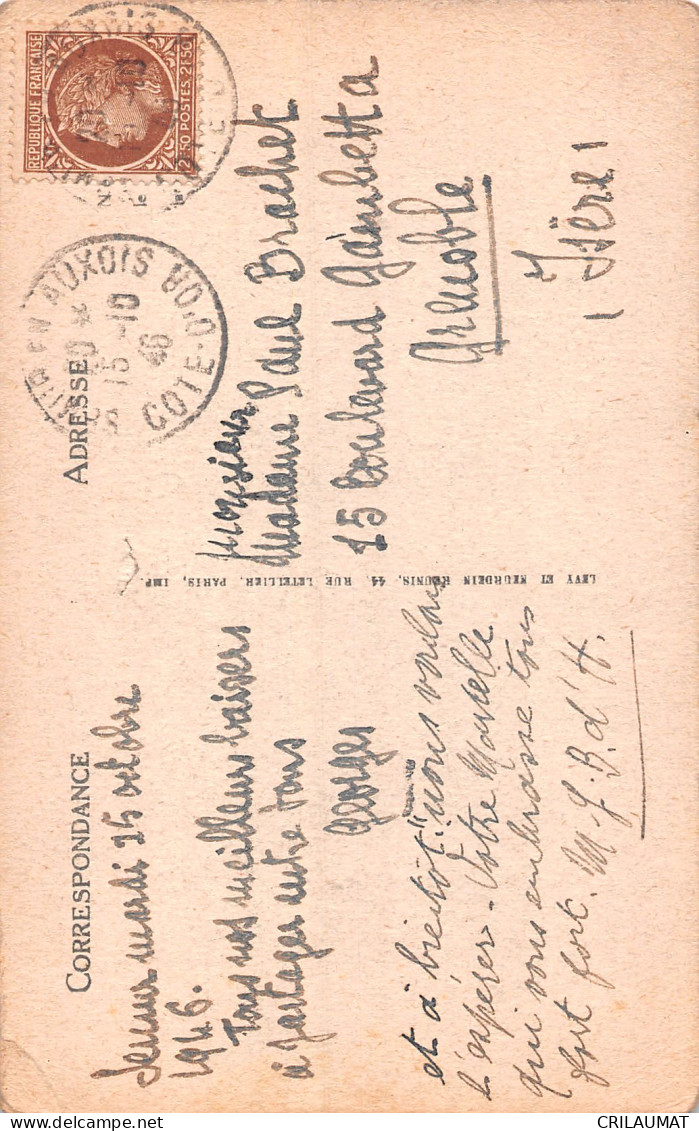 CORRESPONDANCE
Semur mardi 15 octobre
1946.
Tous nos meilleurs baisers
à partager entre tous
Georges
et à bientôt "nous voulons
l'espérer - Votre Marcelle
qui vous embrasse tous
fort fort. M-J. B. d'H.
LEVY ET NEURDEIN REUNIS, 44, RUE LETELLIER, PARIS, IMP.
ADRESSE
Monsieur
Madame Paul Brachet
15 boulevard Gambetta
Grenoble
(Isère)
REPUBLIQUE FRANÇAISE
2F50 POSTES 2F50
AUXOIS
15 -10
46
COTE-D'OR
© CRILAUMAT